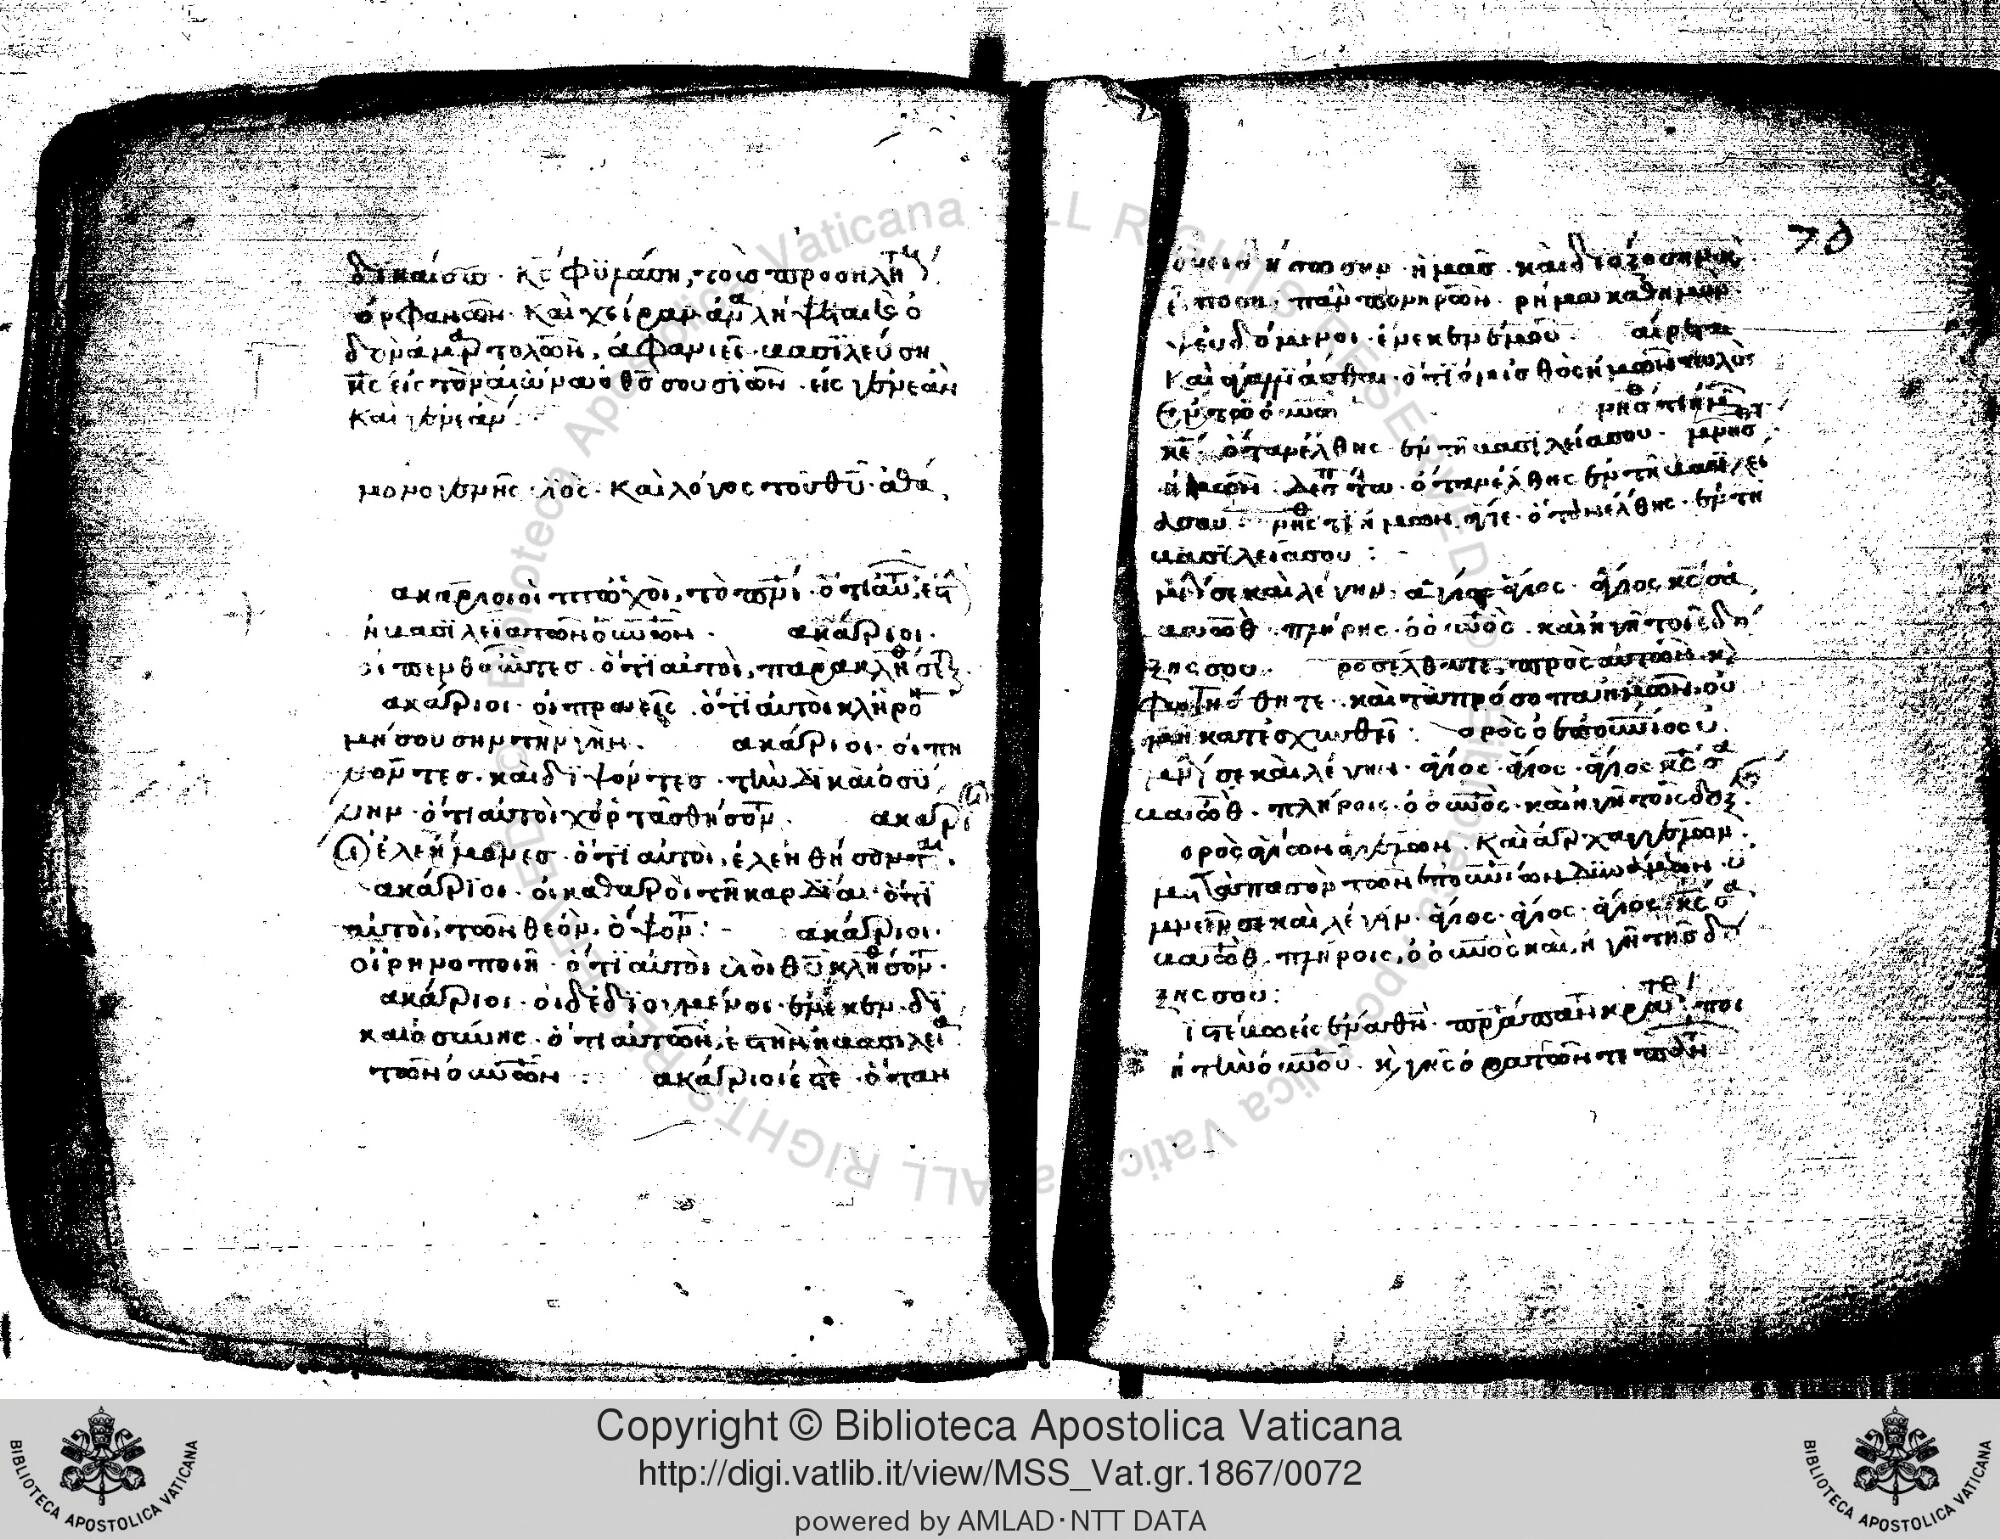 δικαίους· κς φυλάσει, τοὺς προσηλύτους
ὀρφανὸν· καὶ χείραν ἀναλήψεται
ἁμαρτολῶν, ἀφανιεῖ· βασιλεύσει
κς εἰς τὸν αἰῶνα ὁ θς σου σιὼν· εἰς γενεὰν
καὶ γενεάν
μονογενὴς υἱὸς· καὶ λόγος τοῦ θυ ἀθα
ακάριοι οἱ πτωχοὶ, τὸ πνι· ὅτι αὐτῶν ἐστιν
ἡ βασιλεία τῶν οὐνῶν· ακάριοι·
οἱ πενθοῦντες· ὅτι αὐτοὶ, παρακληθήσονται
ακάριοι· οἱ πραεῖς· ὅτι αὐτοὶ κληρο
μήσουσιν τὴν γῆν. ακάριοι· οἱ πη
νοντες· καὶ διψόντες· τὴν δικαιοσύ
νην· ὅτι αὐτοὶ χορτασθήσοντ. ακάρι
οι ἐλεήμονες· ὅτι αὐτοὶ, ἐλεηθήσονται·
ακάριοι· οἱ καθαροὶ τῇ καρδίαι· ὅτι
αὐτοὶ, τὸν θεὸν· ὄψοντ: ακάριοι·
οἱ ρηνοποιοὶ· ὅτι αὐτοὶ υἱοὶ θυ κληθήσοντ·
ακάριοι· οἱ δεδιογμένοι· ἕνεκεν· δι
καιοσύνης· ὅτι αὐτῶν, ἐστιν ἡ βασιλεία
τῶν οὐνῶν: ακάριοι ἐστε· ὅταν
70
ὀνειδήσωσην· ἡμᾶς· καὶ διόξοσην καὶ
εἴποσι· πᾶν πονηρὸν· ρῆμα καθ ἡμῶν·
ψευδόμενοι· ἕνεκεν ἐμοῦ· αίρεται
καὶ ἀγαλλιάσθαι· ὅτι ὁ μισθὸς ἡμῶν πολὺς
ἐν τοῖς οὐνοῖς μνήσθητι ἡμῶν
κε· ὅταν ἔλθης ἐν τῇ βασιλεία σου· μνησ
ἡμῶν· δέσποτα· ὅταν ἔλθης ἐν τῇ βασιλεί
α σου· μνησθητι ἡμῶν ἅγιε· ὅταν ἔλθης· ἐν τῇ
βασιλεία σου:
μνῇ σε καὶ λέγην· ἅγιος ἅγιος· ἅγιος κς σα
βαὼθ· πλήρης· ὁ οὐνὸς· καὶ ἡ γῆ τῆς δό
ξης σου. ροσέλθατε, πρὸς αὐτὸν· καὶ
φωτισθητε· καὶ τὰ πρόσοπα ἡμῶν· οὐ
μὴ κατεσχυνθῇ: ορὸς ὁ ἐπουράνιος ὑ
μνῇ σε καὶ λέγη· ἅγιος· ἅγιος· ἅγιος κς σα
βαὼθ· πλήροις· ὁ οὐνὸς· καὶ ἡ γῆ τῆς δοξ·
ορὸς ἁγίων ἀγγέλων· καὶ ἀρχαγγέλων·
μετὰ πασῶν τῶν ἐπουνίων δυνάμεων· ὑ
μνεῖ σε καὶ λέγην· ἅγιος· ἅγιος· ἅγιος· κς σα
βαὼθ· πλήροις, ὁ οὐνὸς καὶ, ἡ γῆ τῆς δό
ξης σου:
ιστεύω εἰς ἕνα θν· πρα παντοκράτορα· ποι
η τὴν οὐνοῦ· καὶ γῆς ὁρατῶν τε πάντων
Copyright © Biblioteca Apostolica Vaticana
http://digi.vatlib.it/view/MSS_Vat.gr.1867/0072
powered by AMLAD·NTT DATA
BIBLIOTECA APOSTOLICA VATICANA
BIBLIOTECA APOSTOLICA VATICANA